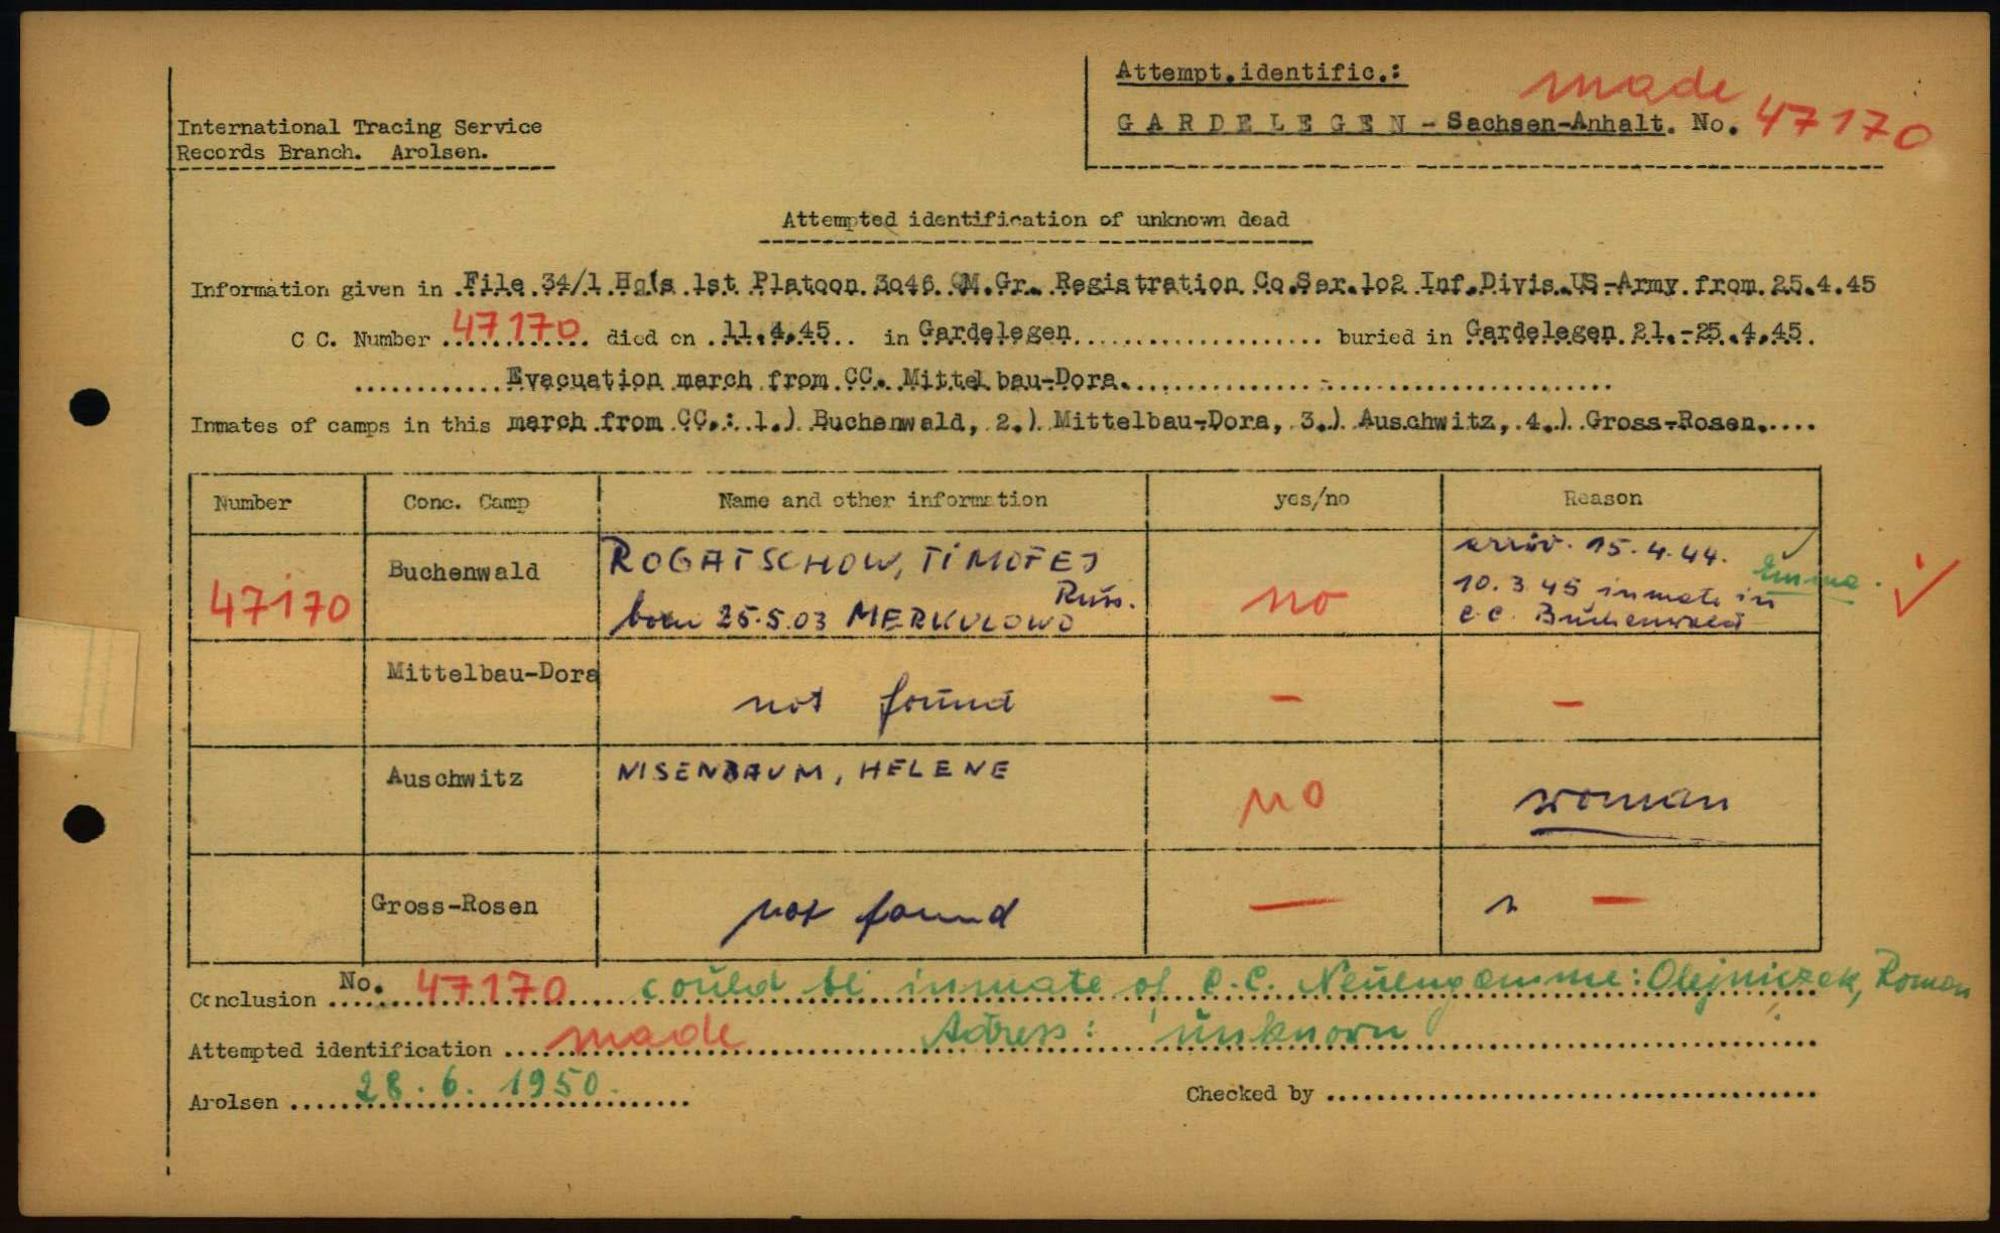 Attempt.identific.:
made
GARDELEGEN - Sachsen-Anhalt. No. 47170
International Tracing Service
Records Branch. Arolsen.
Attempted identification of unknown dead
Information given in File 34/1 Hqts 1st Platoon 3o46 QM.Gr. Registration Co.Ser.1o2 Inf.Divis.US-Army from 25.4.45
C C. Number 47170 died on 11.4.45 in Gardelegen buried in Gardelegen 21.-25.4.45.
Evacuation march from CC. Mittelbau-Dora.
Inmates of camps in this march from CC.: 1.) Buchenwald, 2.) Mittelbau-Dora, 3.) Auschwitz, 4.) Gross-Rosen.
Number Conc. Camp Name and other information yes/no Reason
47170 Buchenwald ROGATSCHOW, TIMOFEJ no arriv. 15.4.44.
Russ. 10.3.45 inmate in
born 25.5.03 MERKULOWO C.C. Buchenwald
Mittelbau-Dora not found - -
Auschwitz NISENBAUM, HELENE no woman
Gross-Rosen not found - -
Conclusion No. 47170 could be inmate of C.C. Neuengamme: Olejniczak, Roman
Attempted identification made Adress: unknown
Arolsen 28.6.1950. Checked by